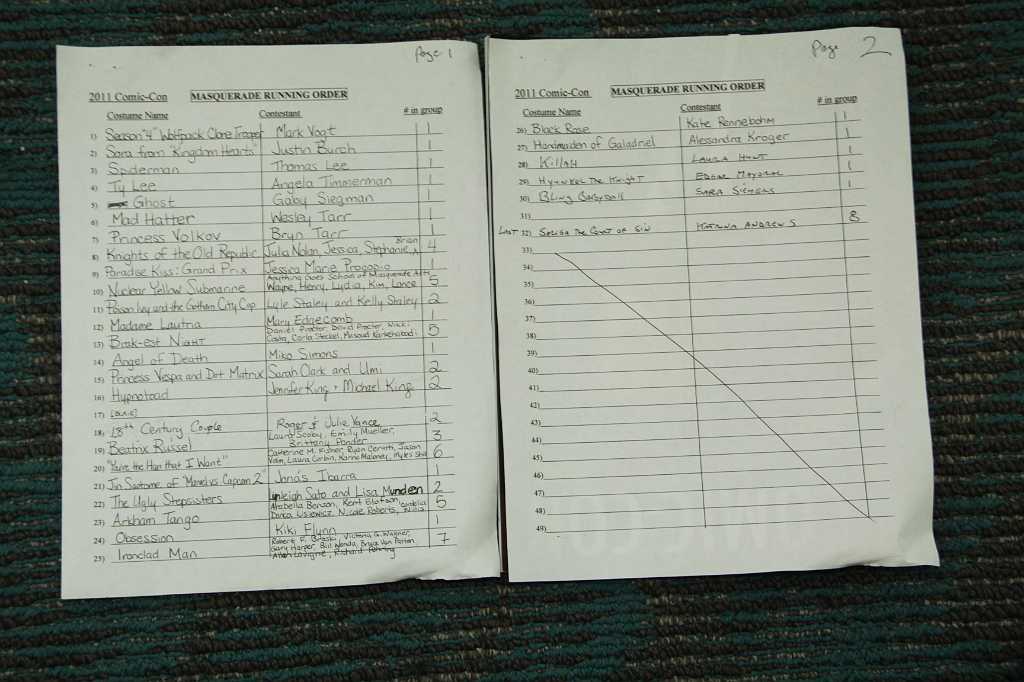 Page 1
2011 Comic-Con MASQUERADE RUNNING ORDER
Costume Name Contestant # in group
1) Season "4" Wolfpack Clone Trooper Mark Vogt 1
2) Sora from "Kingdom Hearts" Justin Burch 1
3) Spiderman Thomas Lee 1
4) Ty Lee Angela Timmerman 1
5) Ghost Gaby Siegman 1
6) Mad Hatter Wesley Tarr 1
7) Princess Volkov Bryn Tarr 1
8) Knights of the Old Republic Julia Nolan, Jessica, Stephanie, Brian 4
9) Paradise Kiss: Grand Prix Jessica Marie Procopio 1
10) Nuclear Yellow Submarine Anything Goes School of Masquerade Arts
Wayne, Henry, Lydia, Kim, Lance 5
11) Poison Ivy and the Gotham City Cop Lyle Staley and Kelly Staley 2
12) Madame Lautria Mary Edgecomb 1
13) Brak-est Night Daniel Proctor, David Proctor, Nicki
Costa, Carla Steckel, 5
14) Angel of Death Miko Simons 1
15) Princess Vespa and Dot Matrix Sarah Clark and Umi 2
16) Hypnotoad Jennifer King + Michael King 2
17)
18) 18th Century Couple Roger & Julie Vance 2
19) Beatrix Russel Laura Scoby, Emily Mueller,
Brittany Ponder 3
20) "You're the Han that I Want" Catherine M. Fisher, Ryan Jason
Laura Corbin, Karrie Maloney, Myles 6
21) Jin Saotome of "Marvel vs Capcom 2" Jonas Ibarra 1
22) The Ugly Stepsisters Lynleigh Sato and Lisa Munden 2
23) Arkham Tango Arabella Benson, Kent Elofson,
Nicole Roberts, 5
24) Obsession Kiki Flynn 1
25) Ironclad Man Robert F. Victoria G. Wagner,
Gary Harper, Bill Bryce Van Patten
Allen Lavigne, Richard 7
Page 2
2011 Comic-Con MASQUERADE RUNNING ORDER
Costume Name Contestant # in group
26) Black Rose Kate Rennebohm 1
27) Handmaiden of Galadriel Alessandra Kroger 1
28) Killah Laura Hunt 1
29) Hyunkel the Knight Edgar Mayoral 1
30) Bling Sara 1
31)
Last 32) the Court of Sin Katrina Andrews 8
33)
34)
35)
36)
37)
38)
39)
40)
41)
42)
43)
44)
45)
46)
47)
48)
49)